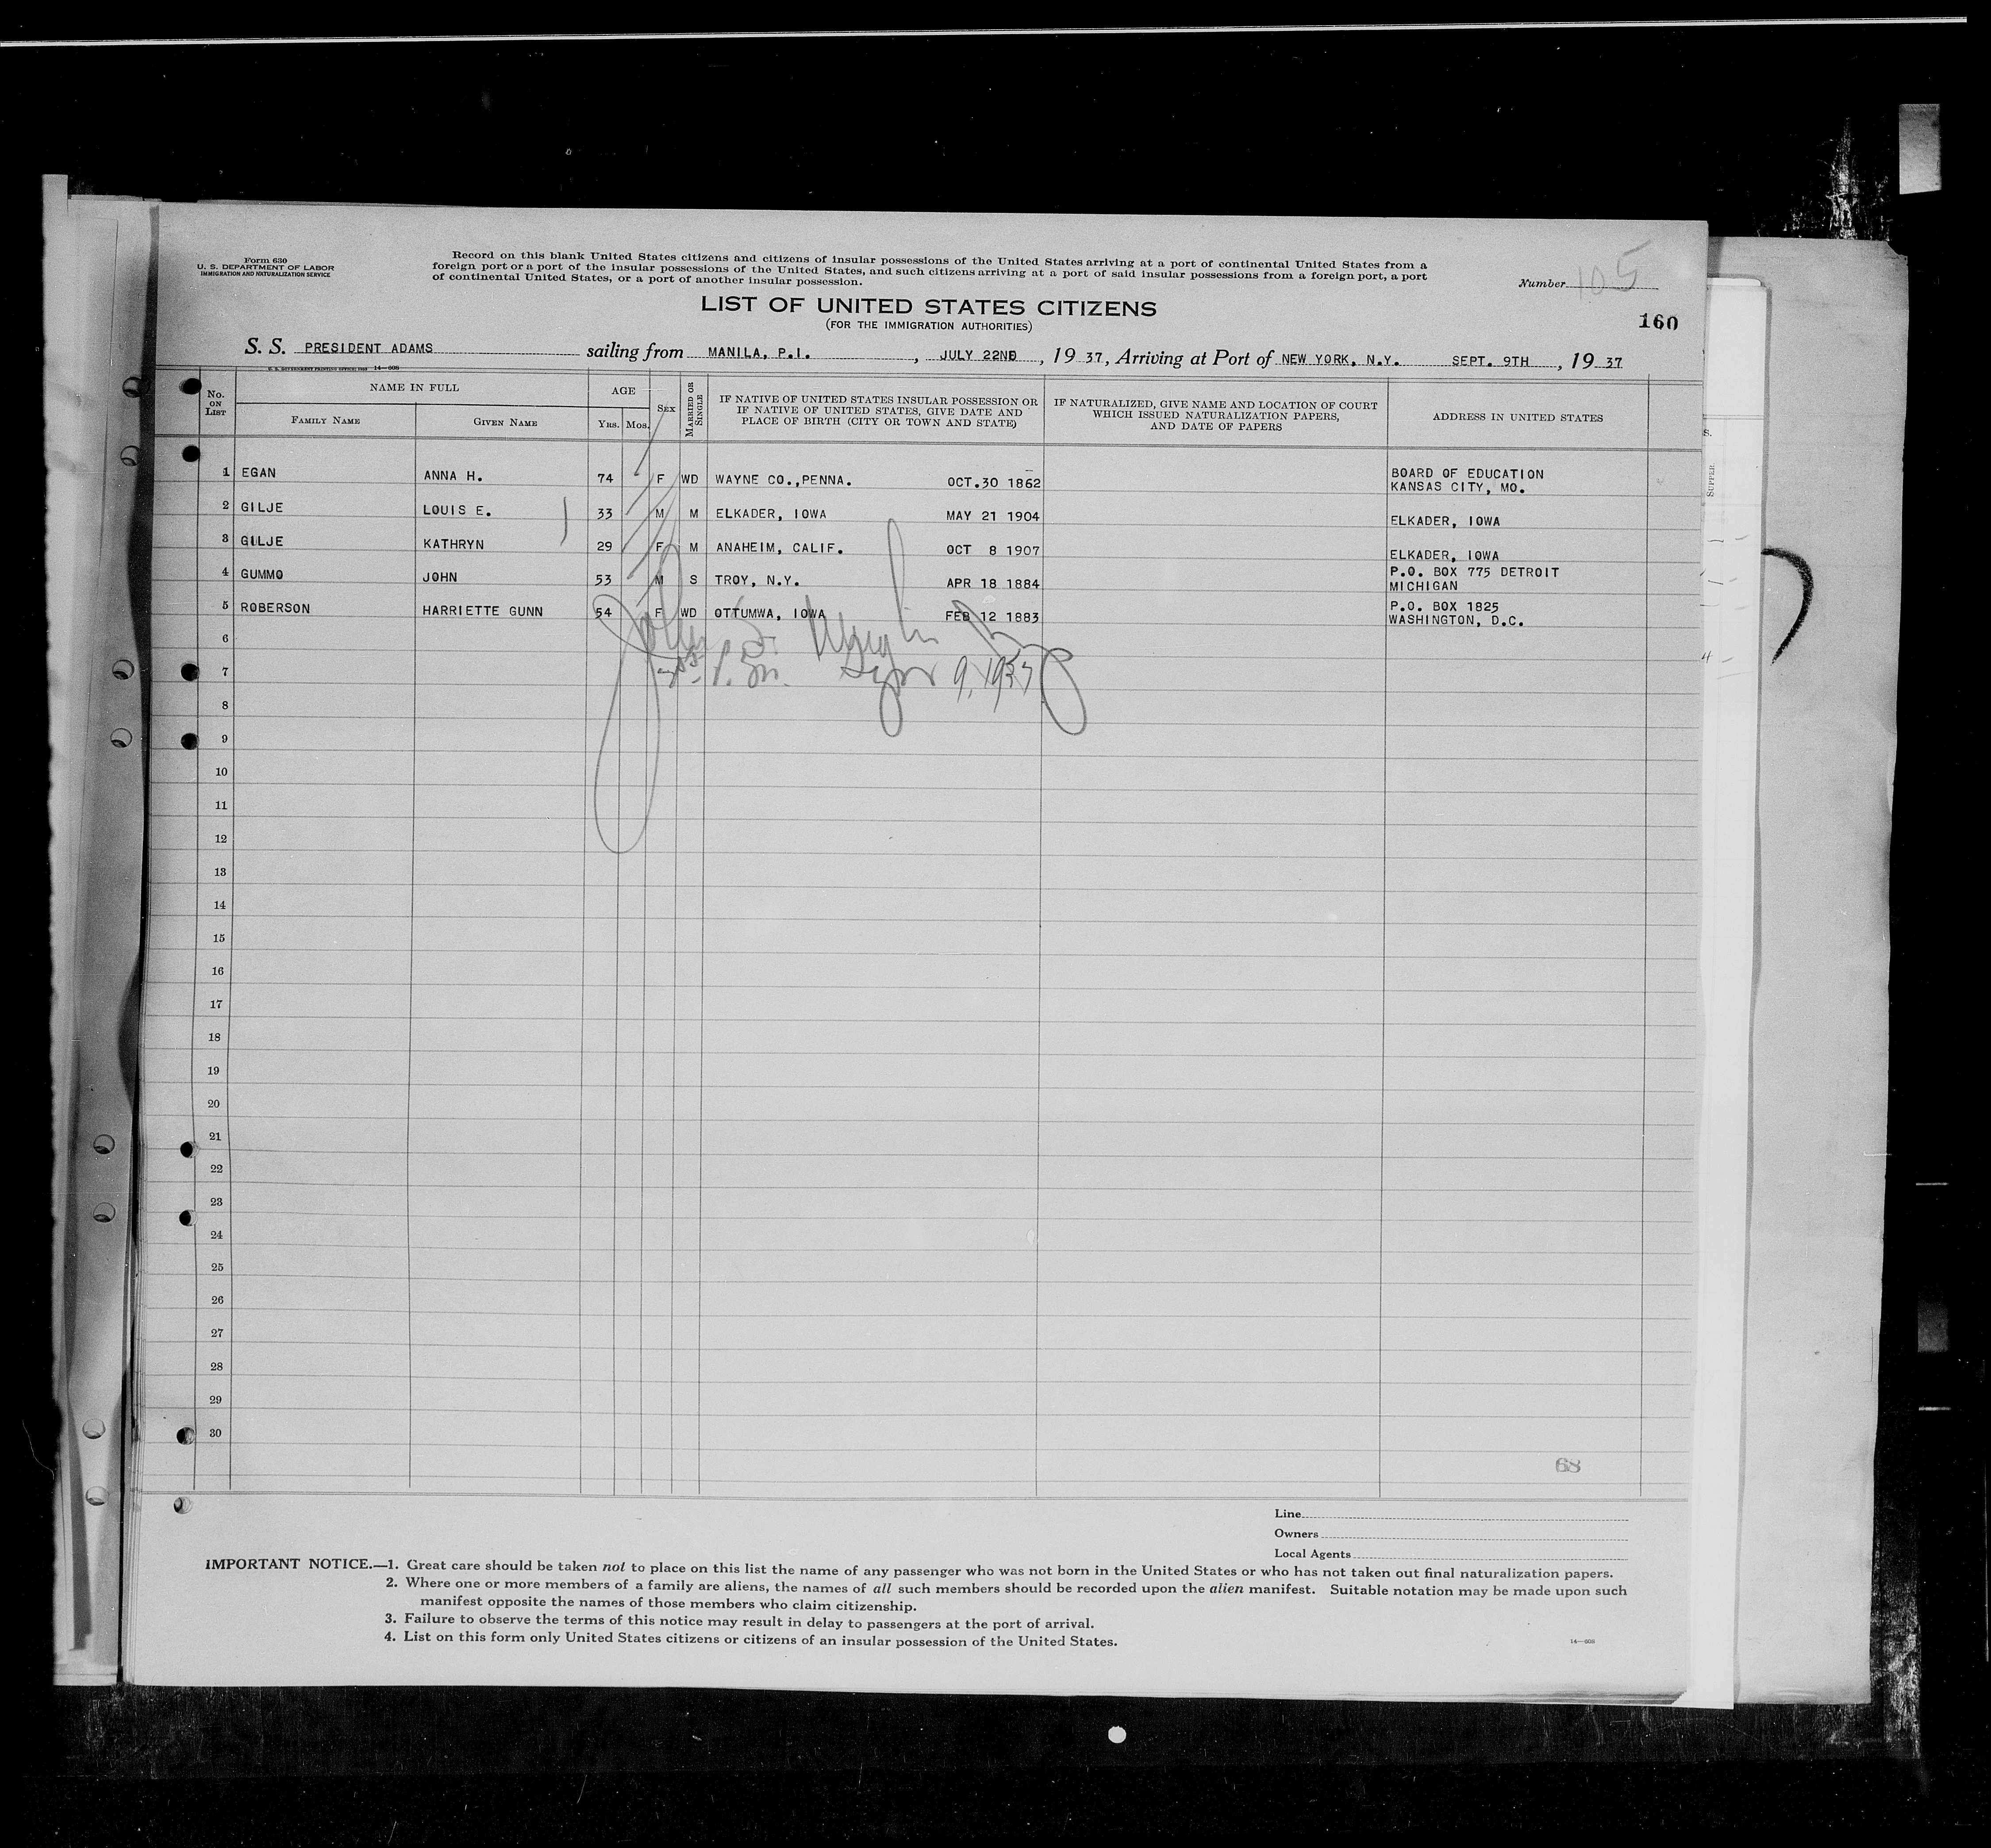 Form 630
U. S. DEPARTMENT OF LABOR
IMMIGRATION AND NATURALIZATION SERVICE
Record on this blank United States citizens and citizens of insular possessions of the United States arriving at a port of continental United States from a
foreign port or a port of the insular possessions of the United States, and such citizens arriving at a port of said insular possessions from a foreign port, a port
of continental United States, or a port of another insular possession.
Number 105
LIST OF UNITED STATES CITIZENS
(FOR THE IMMIGRATION AUTHORITIES)
160
S. S. PRESIDENT ADAMS sailing from MANILA, P.I. , JULY 22ND , 19 37, Arriving at Port of NEW YORK, N.Y. SEPT. 9TH , 19 37
U. S. GOVERNMENT PRINTING OFFICE 14—608
No. ON LIST NAME IN FULL FAMILY NAME GIVEN NAME AGE YRS. MOS. SEX MARRIED OR SINGLE IF NATIVE OF UNITED STATES INSULAR POSSESSION OR IF NATIVE OF UNITED STATES, GIVE DATE AND PLACE OF BIRTH (CITY OR TOWN AND STATE) IF NATURALIZED, GIVE NAME AND LOCATION OF COURT WHICH ISSUED NATURALIZATION PAPERS, AND DATE OF PAPERS ADDRESS IN UNITED STATES
1 EGAN ANNA H. 74 F WD WAYNE CO.,PENNA. OCT.30 1862 BOARD OF EDUCATION
KANSAS CITY, MO.
2 GILJE LOUIS E. 33 M M ELKADER, IOWA MAY 21 1904 ELKADER, IOWA
3 GILJE KATHRYN 29 F M ANAHEIM, CALIF. OCT 8 1907 ELKADER, IOWA
4 GUMMO JOHN 53 M S TROY, N.Y. APR 18 1884 P.O. BOX 775 DETROIT
MICHIGAN
5 ROBERSON HARRIETTE GUNN 54 F WD OTTUMWA, IOWA FEB 12 1883 P.O. BOX 1825
WASHINGTON, D.C.
6
7 9, 1937
8
9
10
11
12
13
14
15
16
17
18
19
20
21
22
23
24
25
26
27
28
29
30
68
Line
Owners
Local Agents
IMPORTANT NOTICE.—1. Great care should be taken not to place on this list the name of any passenger who was not born in the United States or who has not taken out final naturalization papers.
2. Where one or more members of a family are aliens, the names of all such members should be recorded upon the alien manifest. Suitable notation may be made upon such
manifest opposite the names of those members who claim citizenship.
3. Failure to observe the terms of this notice may result in delay to passengers at the port of arrival.
4. List on this form only United States citizens or citizens of an insular possession of the United States.
14—608
S.
SUPPER.